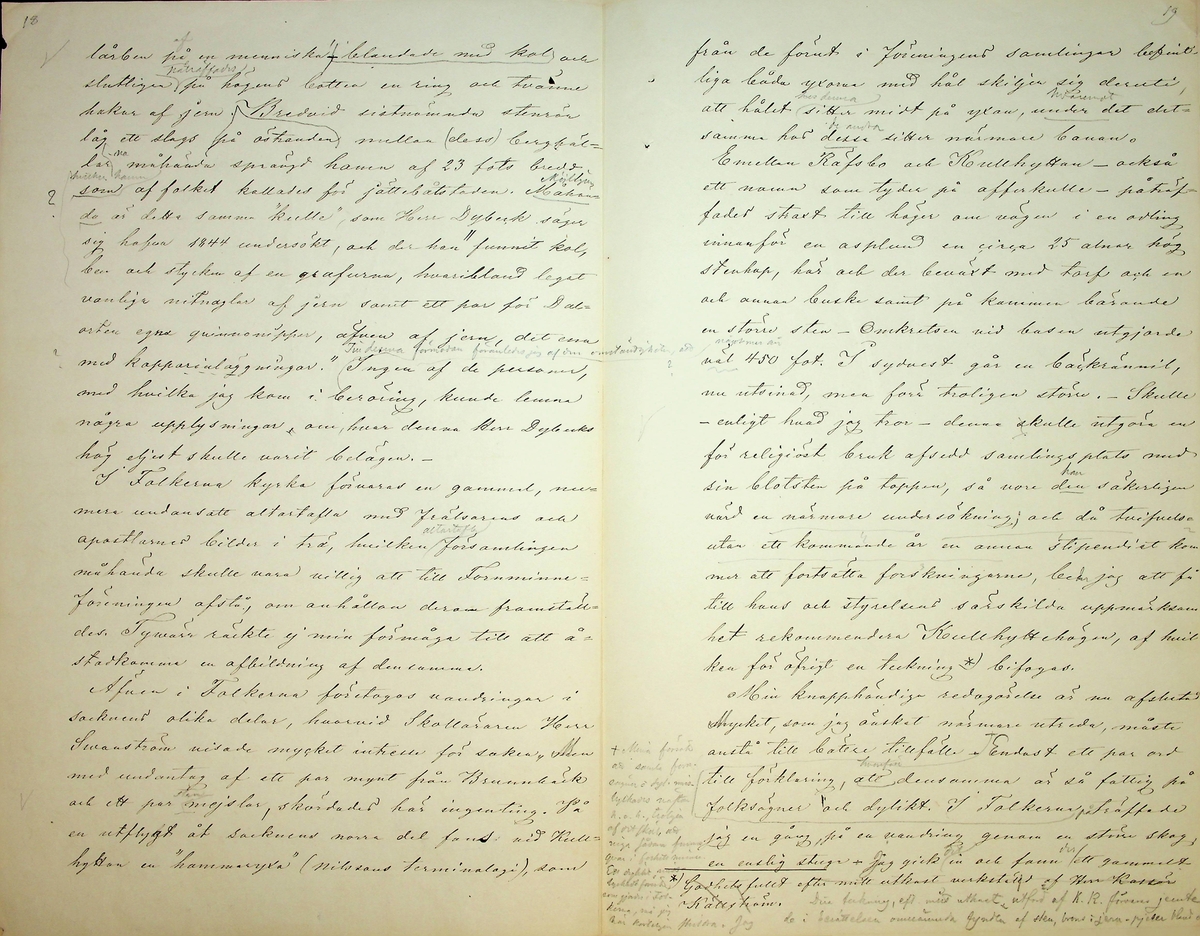 18
af
lårben på en menniska + blandade med kol och
påträffades
slutligen på högens botten en ring och tvänne
hakar af jern. Bredvid sistnämnda stenrör
låg ett slags på östanden mellan (dess) bergväl-
lar måhända sprängd hamn af 23 fots bredd
som af folket kallades för jättebåtstaden. Måhän-
da är detta samma "kulle", som Herr Dybeck säger
sig hafva 1844 undersökt, och der han "funnit kol,
ben och stycken af en grafurna, hvaribland legat
vanliga nitnaglar af jern samt ett par för Dal-
orten egna qvinnenipper, äfven af jern, det ena
med kopparinläggningar." Ingen af de personer,
med hvilka jag kom i beröring, kunde lemna
några upplysningar, om hvar denna Herr Dybecks
hög eljest skulle varit belägen. –
I Folkerna kyrka förvaras en gammal, nu-
mera undansatt altartafla med Frälsarens och
altartafla
apostlarnes bilder i trä, hvilken församlingen
måhända skulle vara villig att till Fornminne-
föreningen afstå, om anhållan derom framstäl-
des. Tyvärr räckte ej min förmåga till att å-
stadkomma en afbildning af densamma.
Äfven i Folkerna företogos vandringar i
socknens olika delar, hvarvid Skolläraren Herr
Swanström visade mycket intresse för saken. Men
med undantag af ett par mynt från Brunnbäck
och ett par mejslar, skördades här ingenting. På
en utflygt åt socknens norra del fans vid Kull-
hyttan en "hammaryxa" (Nilssons terminologi), som
19
från de förut i föreningens samlingar befint-
liga båda yxorna med hål skiljer sig deruti,
att hålet sitter midt på yxan, under det det-
de andra
samma hos dessa sitter närmare banan.
Emellan Räfsbo och Kullhyttan – också
ett namn som tyder på offerkulle – påträf-
fades straxt till höger om vägen i en odling
innanför en asplund en cirça 25 alnar hög
stenhop, här och der beväxt med torf och en
och annan buske samt på kammen bärande
en större sten – Omkretsen vid basen utgjorde
väl 450 fot. I sydvest går en bäckrännil,
nu utsinad, men förr troligen större. – Skulle
– enligt hvad jag tror – denna skulle utgöra en
för religiöst bruk afsedd samlingsplats med
han
sin blotsten på toppen, så vore den säkerligen
värd en närmare undersökning; och då tvifvels-
utan ett kommande år en annan stipendist kom-
mer att fortsätta forskningarne, beder jag att få
till hans och styrelsens särskilda uppmärksam-
het rekommendera Kullhyttehögen, af hvil-
ken för öfrigt en teckning *) bifogas.
Min knapphändiga redogörelse är nu afslutad
Mycket, som jag önskat närmare utreda, måste
anstå till bättre tillfälle. Endast ett par ord
till förklaring, att densamma är så fattig på
folksägner och dylikt. I Folkerna träffade
jag en gång på en vandring genom en större skog
en enslig stuga + Jag gick in och fann ett gammalt
*) Godhetsfullt efter mitt utkast verkstäld af Herr
Källström.